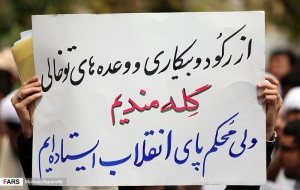 از رکود و بیکاری و وعده های توخالی
گِله مندیم
ولی محکم پای انقلاب ایستاده ایم
FARS